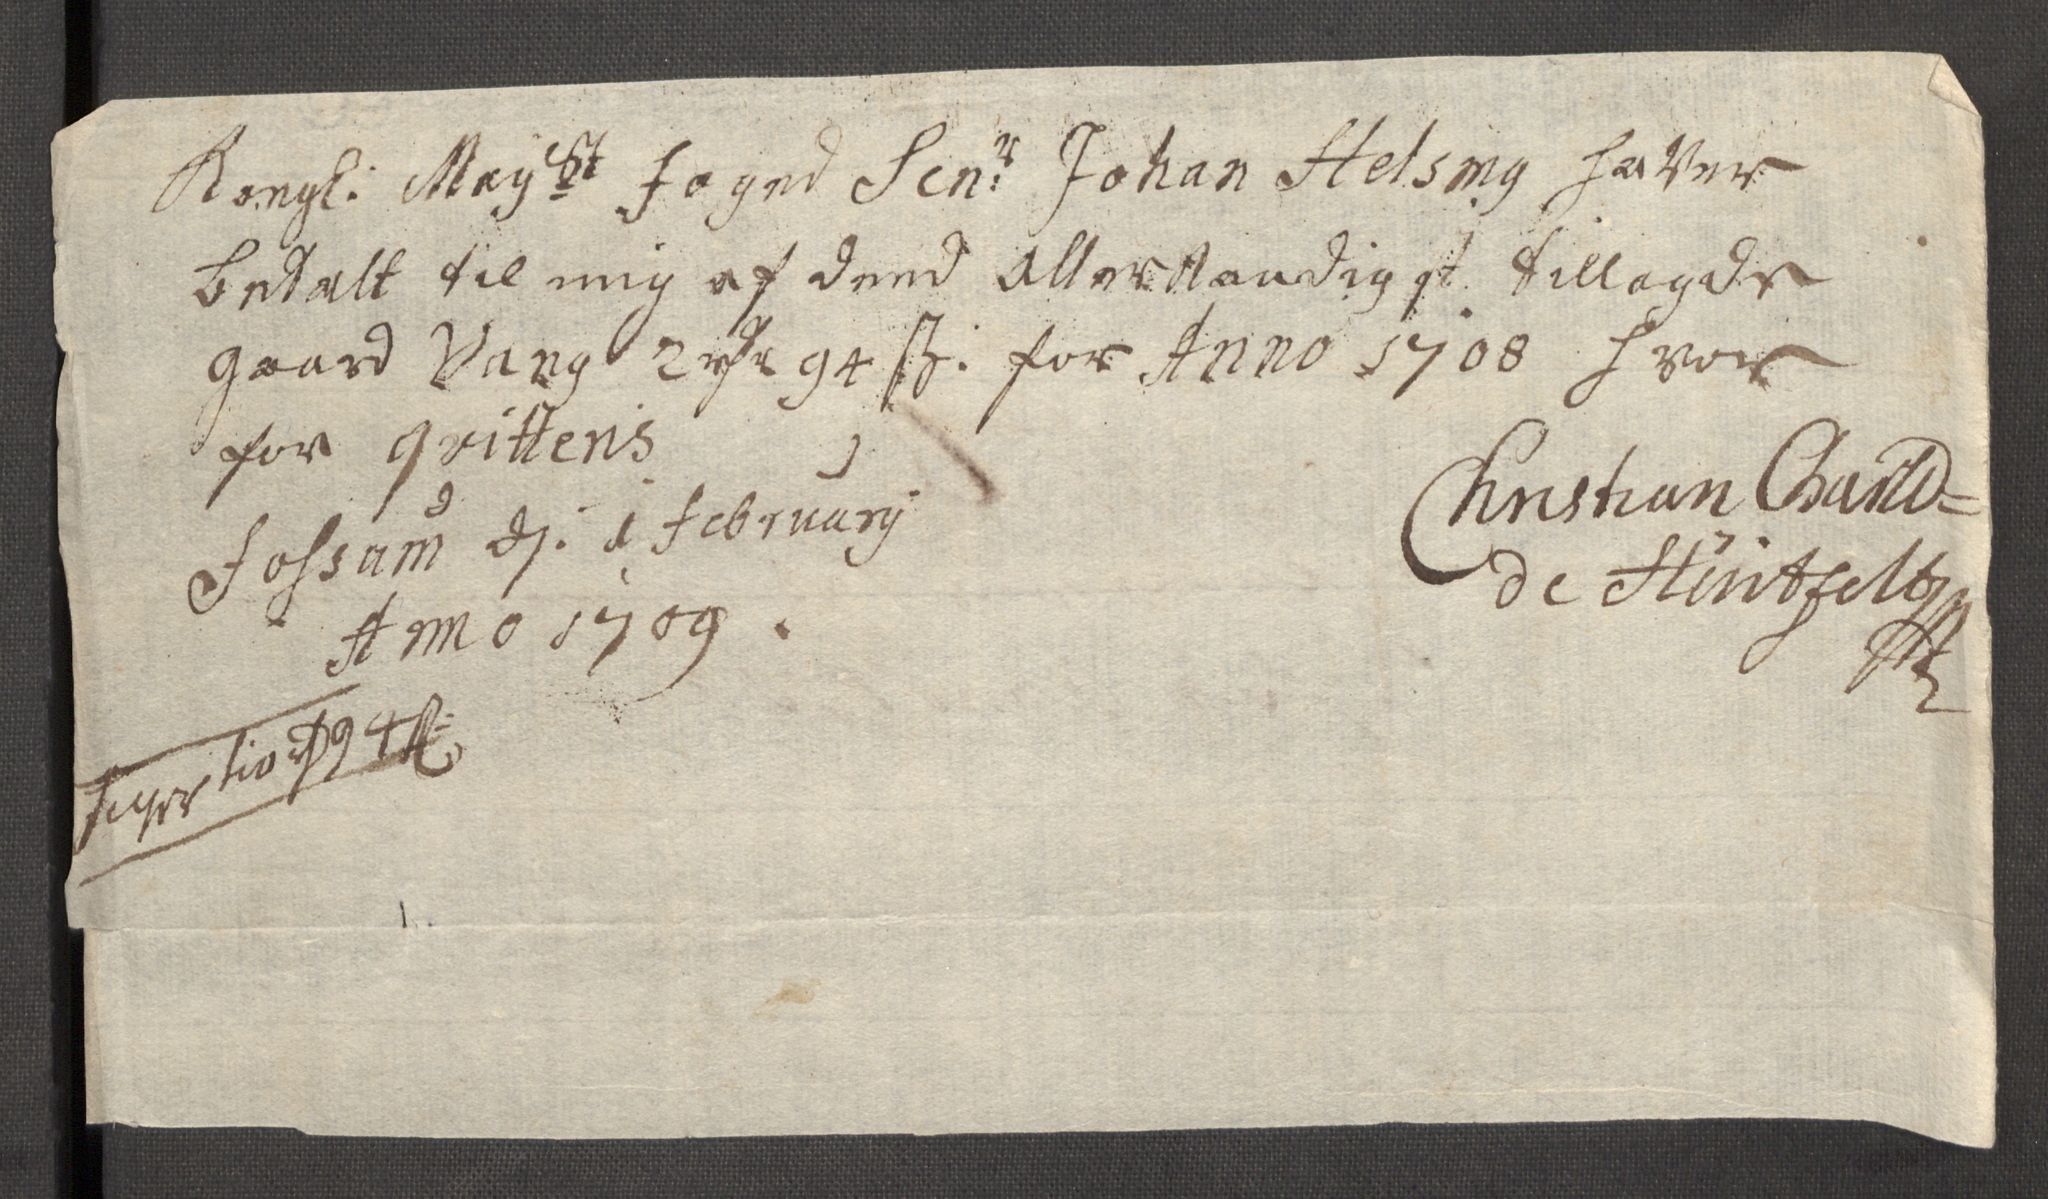 Kongl: May:st Foged Sen:r Johan Helsing haver
betalt til mig af dend Allernaadigst tillagde
gaard Vang 2 rdr 94 ß. for Anno 1708 hvor
for qvitteris
Fossum d. 1 February
Anno 1709.
Christian Charild=
de Hüitfeldt
94 ß